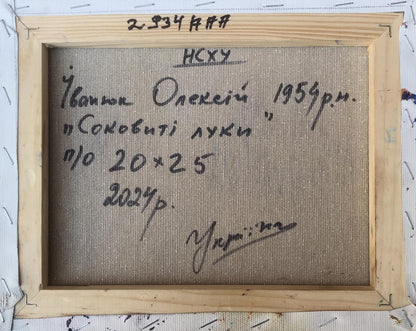 2934ААА
НСХУ
Іванюк Олексій 1954р.н.
"Соковиті луки"
п/о 20×25
2024р.
Україна